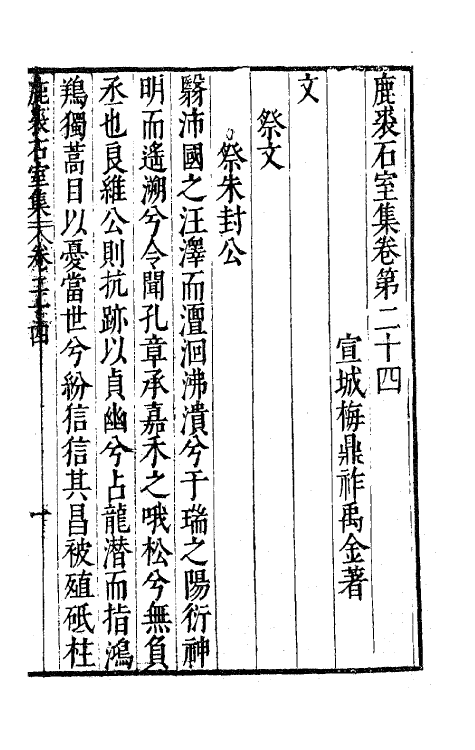 鹿裘石室集卷第二十四
宣城梅鼎祚禹金著
文
祭文
祭朱封公
翳沛國之汪澤而澶洄沸潰兮于瑞之陽衍神
明而遙溯兮令聞孔章承嘉禾之哦松兮無負
丞也良維公則抗跡以貞幽兮占龍潜而指鴻
鵷獨蒿目以憂當世兮紛信信其昌被殖砥柱
鹿裘石室集 文卷二十四 一